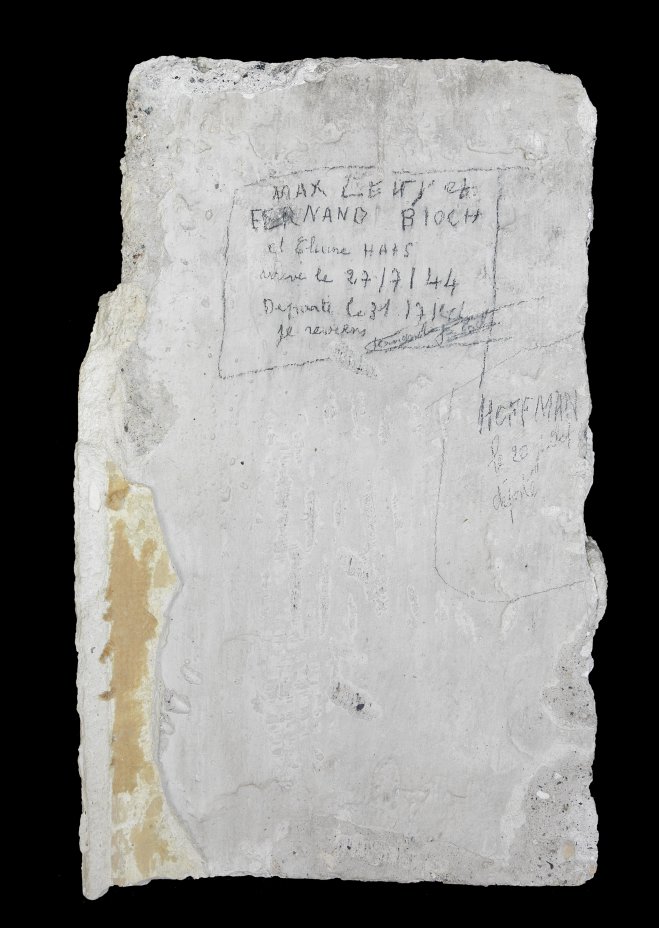 MAX LEVY et
FERNAND BLOCH
et Eliane HAAS
arrivé le 27/7/44
Deporté le 31/7/44
je reviens
HOFFMAN
le 20
déporté